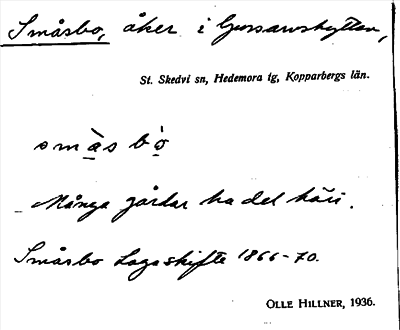 Småsbo, åker i Gussarvshyttan,
St. Skedvi sn, Hedemora tg, Kopparbergs län.
små̀s bò̱
Många gårdar ha del häri.
Småsbo Laga skifte 1866-70.
OLLE HILLNER, 1936.